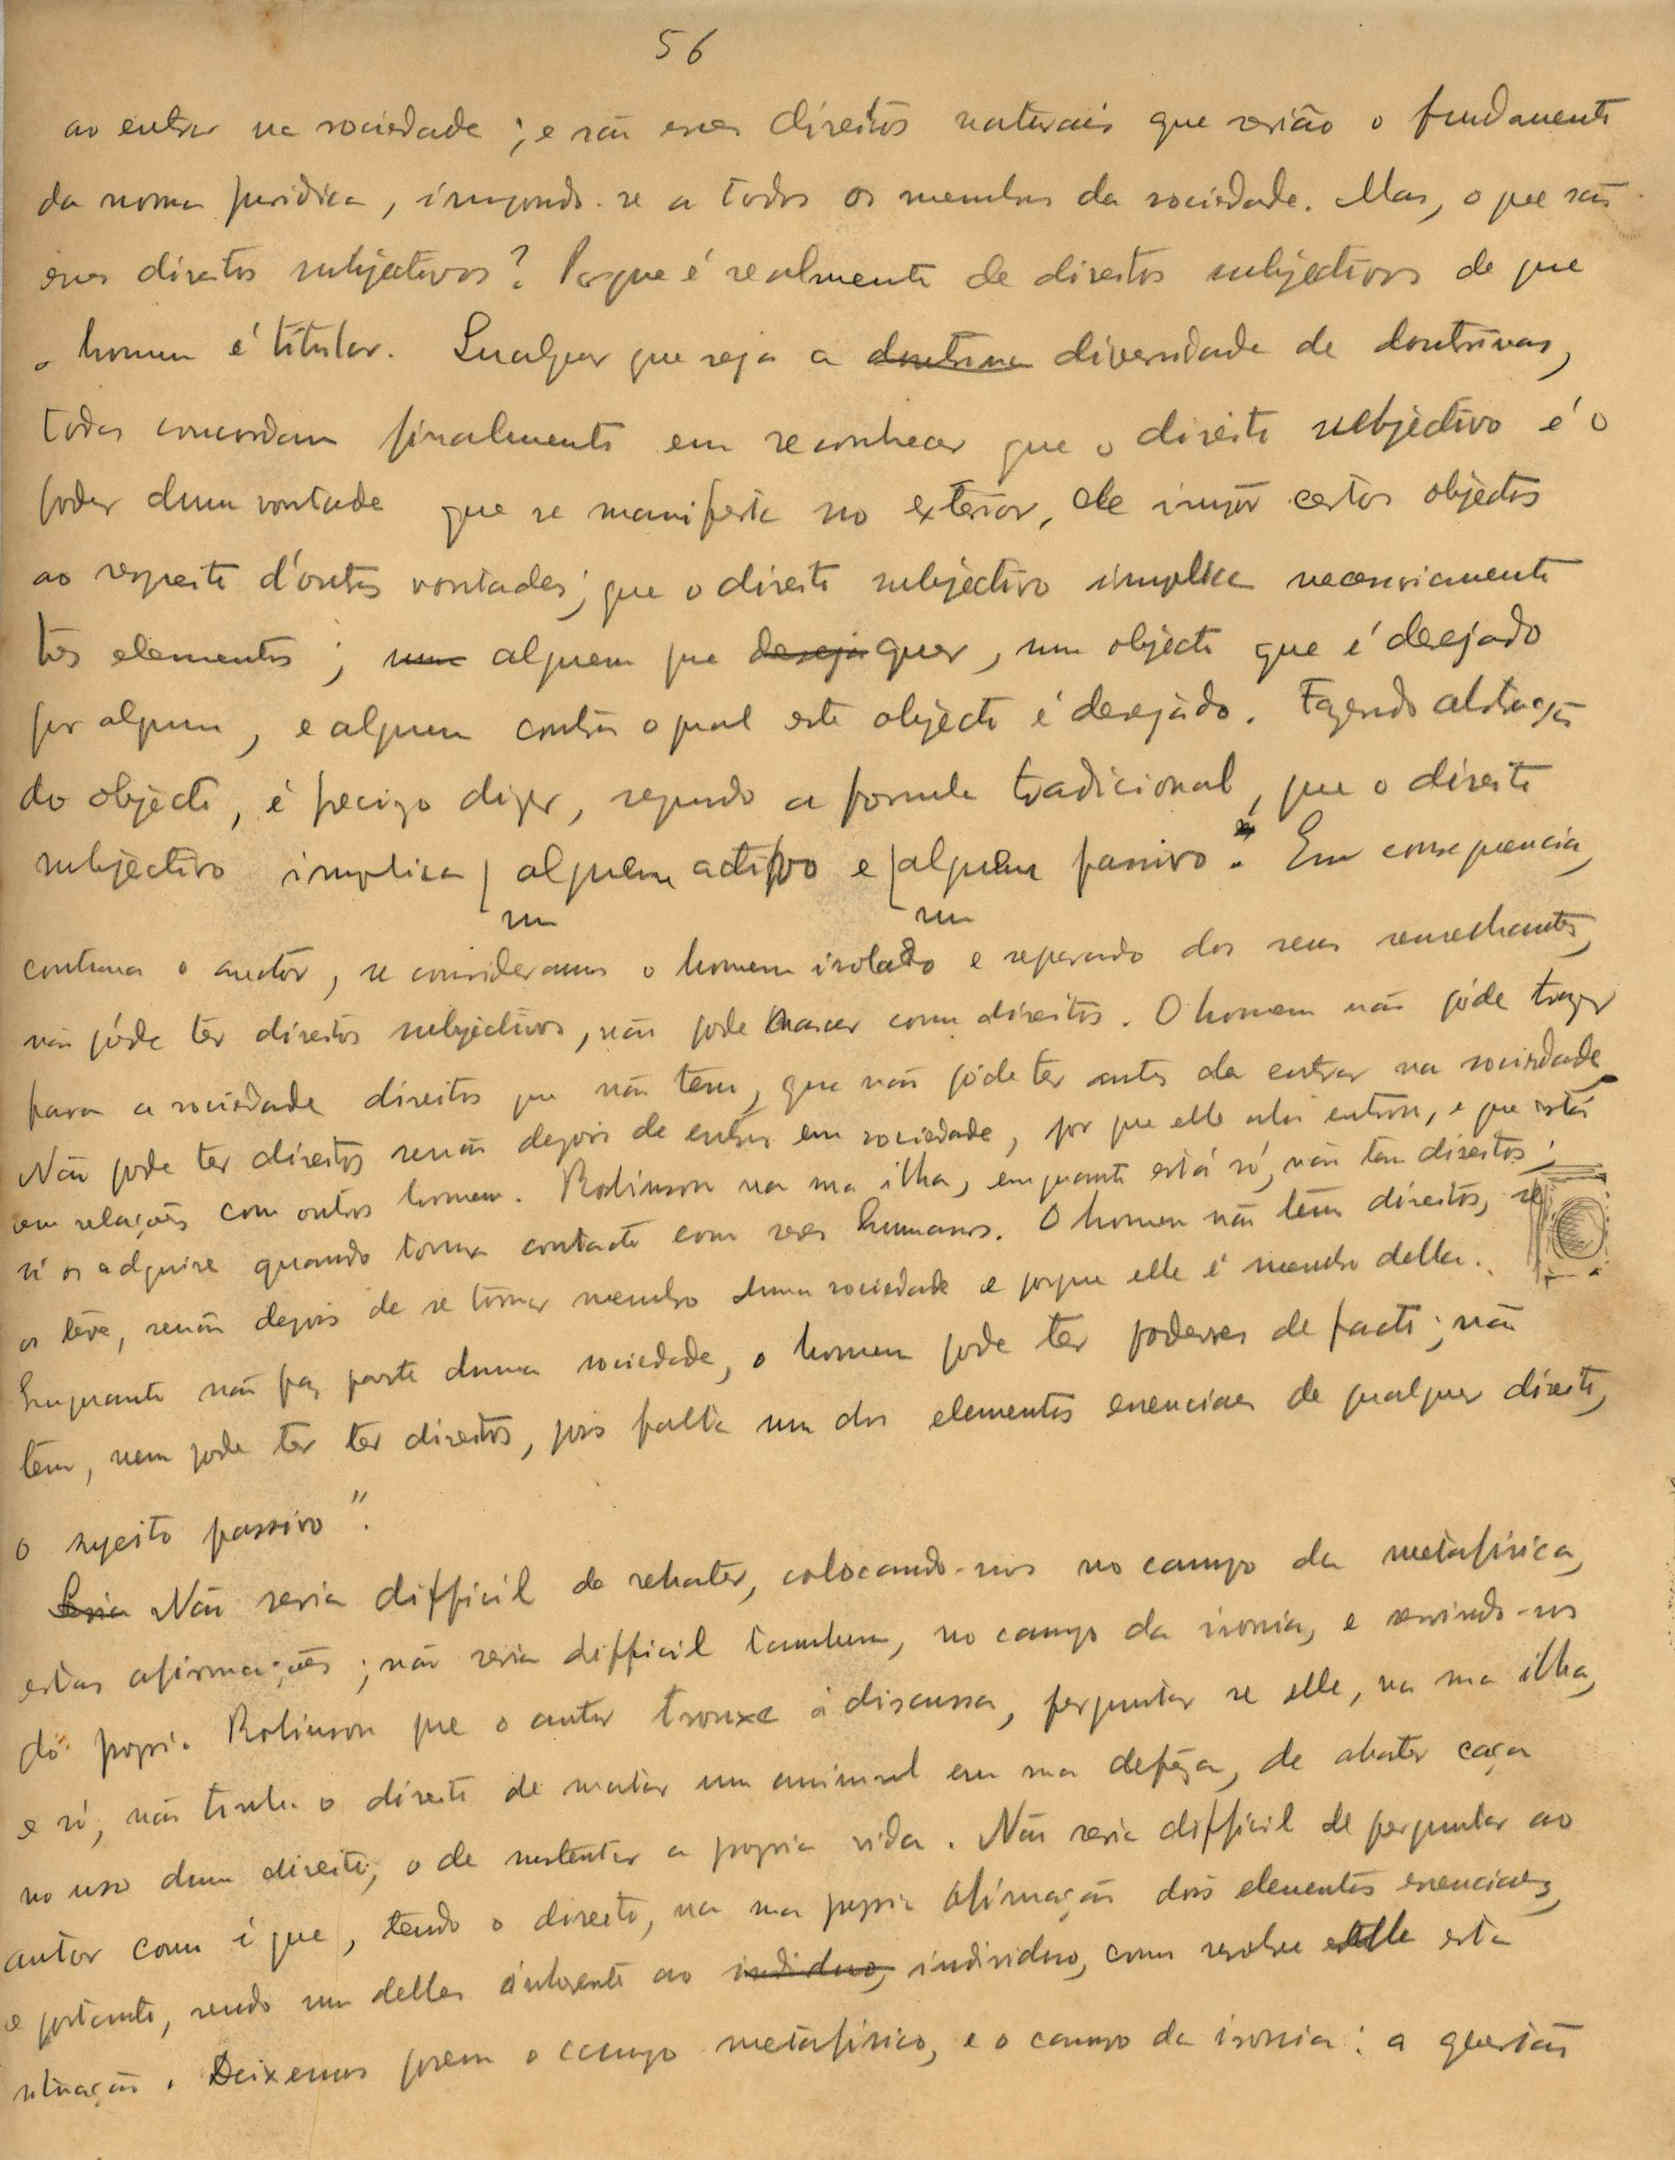 56
ao entrar na sociedade; e são esses direitos naturais que serião o fundamento
da norma juridica, impondo-se a todos os membros da sociedade. Mas, o que são
esses direitos subjectivos? Porque é realmente de direitos subjectivos de que
o homem é titular. Qualquer que seja a doutrina diversidade de doutrinas,
todas concordam finalmente em reconhecer que o direito subjectivo é o
poder duma vontade que se manifesta no exterior, de impôr certos objectos
ao respeito d'outras vontades; que o direito subjectivo implica necessariamente
tres elementos; um alguem que deseja quer, um objecto que é desejado
por alguem, e alguem contra o qual este objecto é desejado. Fazendo abstração
do objecto, é precizo dizer, segundo a formula tradicional, que o direito
subjectivo implica um alguem activo e um alguem passivo. Em consequencia,
continua o auctor, se consideramos o homem isolado e separado dos seus semelhantes,
não póde ter direitos subjectivos, não pode nascer com direitos. O homem não póde trazer
para a sociedade direitos que não tem, que não póde ter antes de entrar na sociedade.
Não pode ter direitos senão depois de entrar em sociedade, por que elle ahi entrou, e que está
em relações com outros homens. Robinson na sua ilha, emquanto está só, não tem direitos;
só os adquire quando toma contacto com seres humanos. O homem não têm direitos, se
os teve, senão depois de se tornar membro duma sociedade e porque elle é membro della.
Emquanto não faz parte duma sociedade, o homem pode ter poderes de facto; não
tem, nem pode ter ter direitos, pois falta um dos elementos essenciaes de qualquer direito,
o sujeito passivo".
Seria Não seria difficil de rebater, colocando-nos no campo da metafisica,
estas afirmações; não seria difficil tambem, no campo da ironia, e servindo-nos
do proprio Robinson que o autor trouxe á discussa, perguntar se elle, na sua ilha,
e só, não tinha o direito de matar um animal em sua defeza, de abater caça
no uso dum direito, o de sustentar a propria vida. Não seria difficil de perguntar ao
autor como é que, tendo o direito, na sua propria afirmação dois elementos essenciaes,
e portanto, sendo um delles inherente ao individuo, individuo, como resolve elle esta
situação. Deixemos porem o campo metafisico, e o campo da ironia: a questão